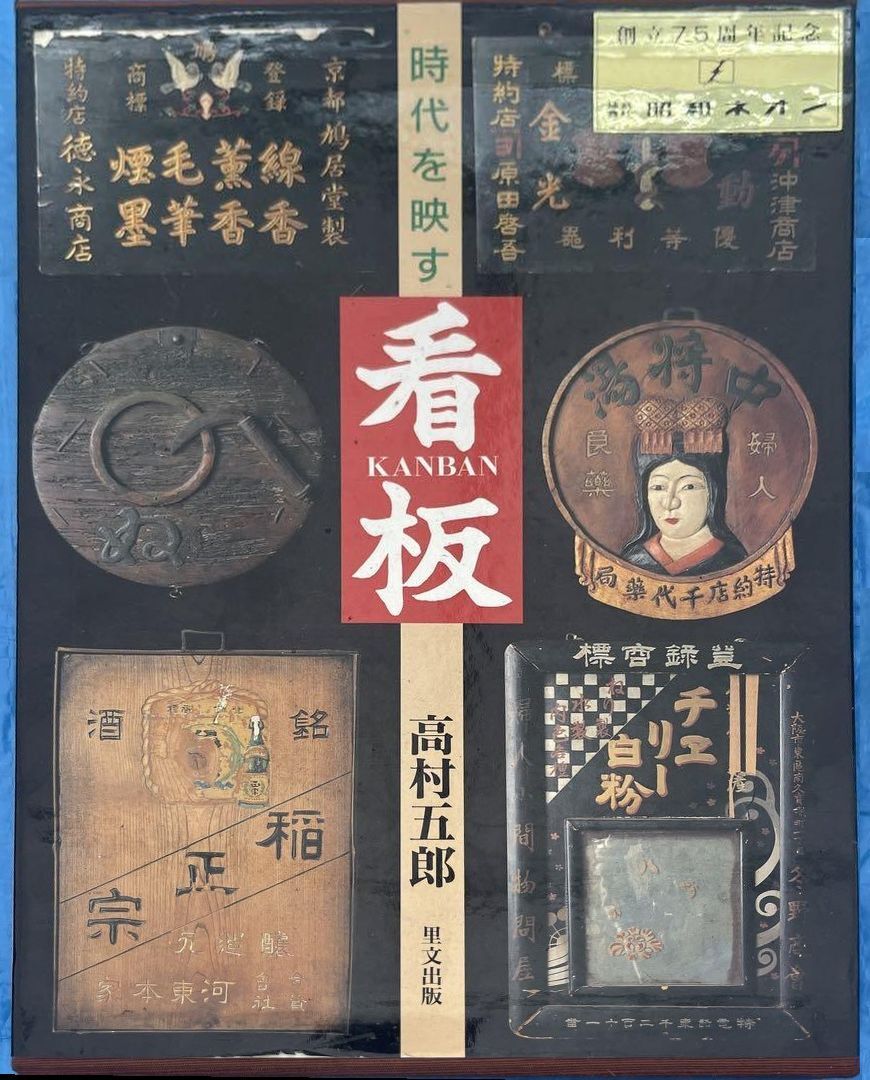 時代を映す
看
KANBAN
板
高村五郎
里文出版
創立75周年記念
昭和ネオン
京都鳩居堂製
登録
商標
鳩
線香
薫香
毛筆
煙墨
特約店 徳永商店
沖津商店
動
標
金光
優等利器
特約店
原田啓吾
ぬ
中将湯
婦人
良薬
特約店千代薬局
銘酒
稲
正
宗
釀造元
合資
會社
河東本家
登録商標
チエリー
白粉
婦人小間物問屋